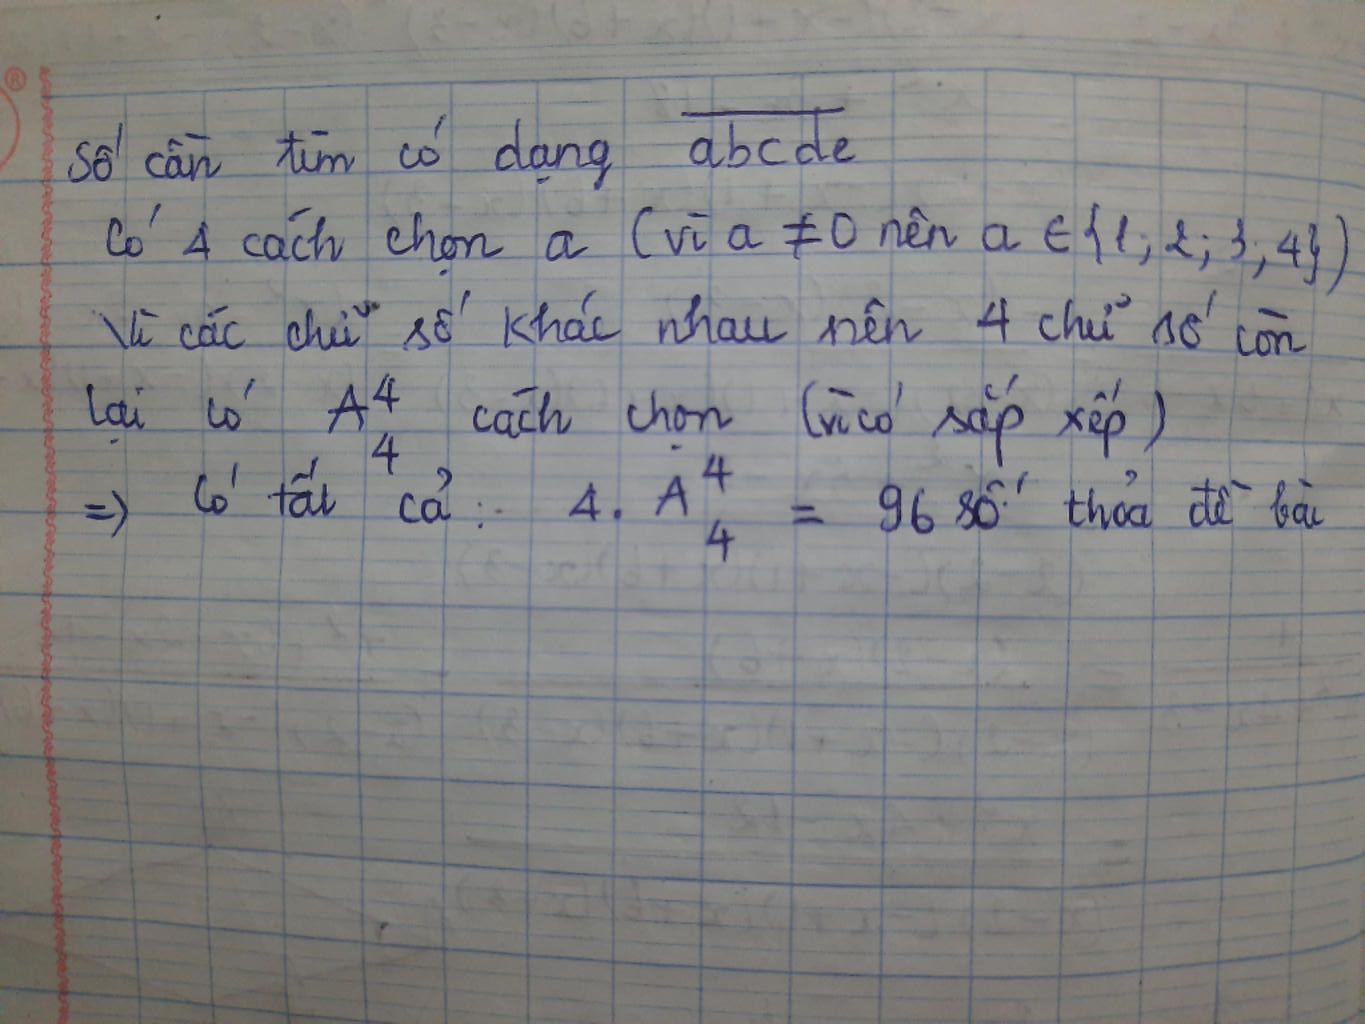 Số cần tìm có dạng abcde
Có 4 cách chọn a (vì a ≠ 0 nên a ∈ {1; 2; 3; 4})
Vì các chữ số khác nhau nên 4 chữ số còn
lại có A⁴₄ cách chọn (vì có sắp xếp)
=> Có tất cả : 4. A⁴₄ = 96 số thỏa đề bài